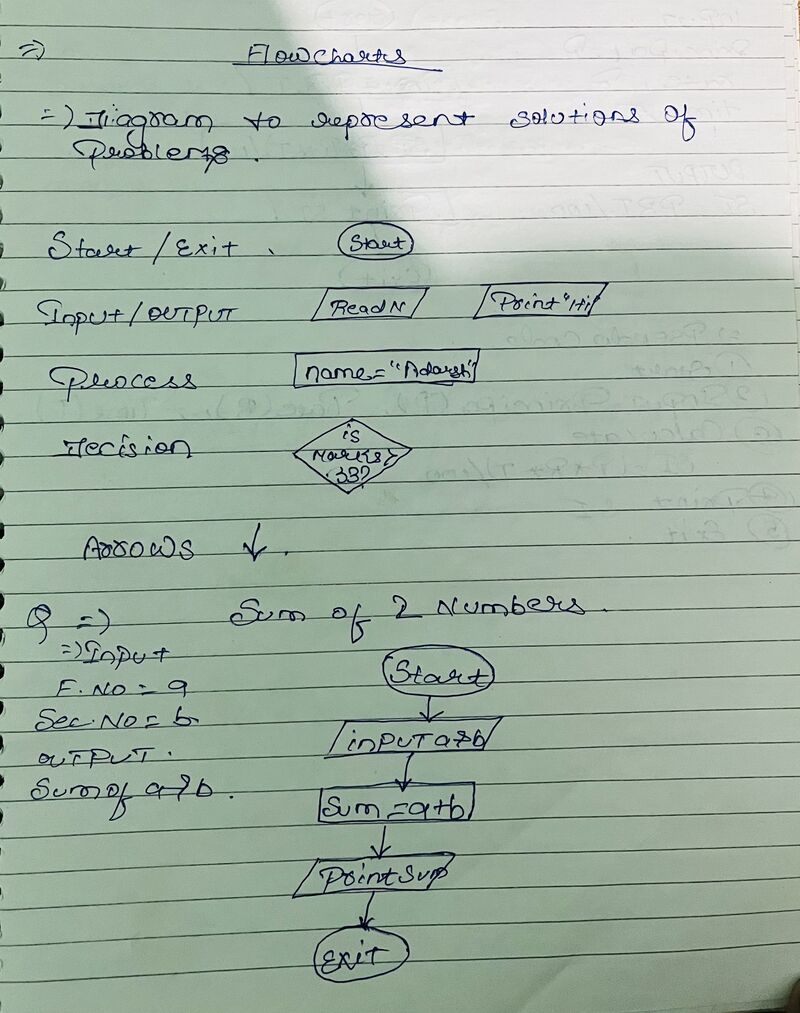 => Flowcharts
=> Diagram to represent solutions of
Problems.
Start / Exit . Start
Input / OUTPUT Read N Print "Hi"
Process name = "Adarsh"
Decision is
marks >
33?
Arrows ↓ .
Q => Sum of 2 Numbers.
=> Input
F. NO = a
Sec. NO = b
OUTPUT.
Sum of a & b .
Start
input a & b
Sum = a+b
Print Sum
Exit